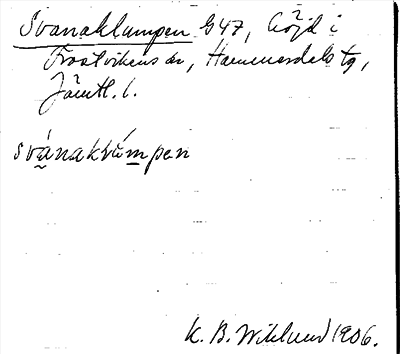 Svanaklumpen G47, höjd i
Frostvikens sn, Hammerdals tg,
Jämtl. l.
svánaklúmpen
K. B. Wiklund 1906.